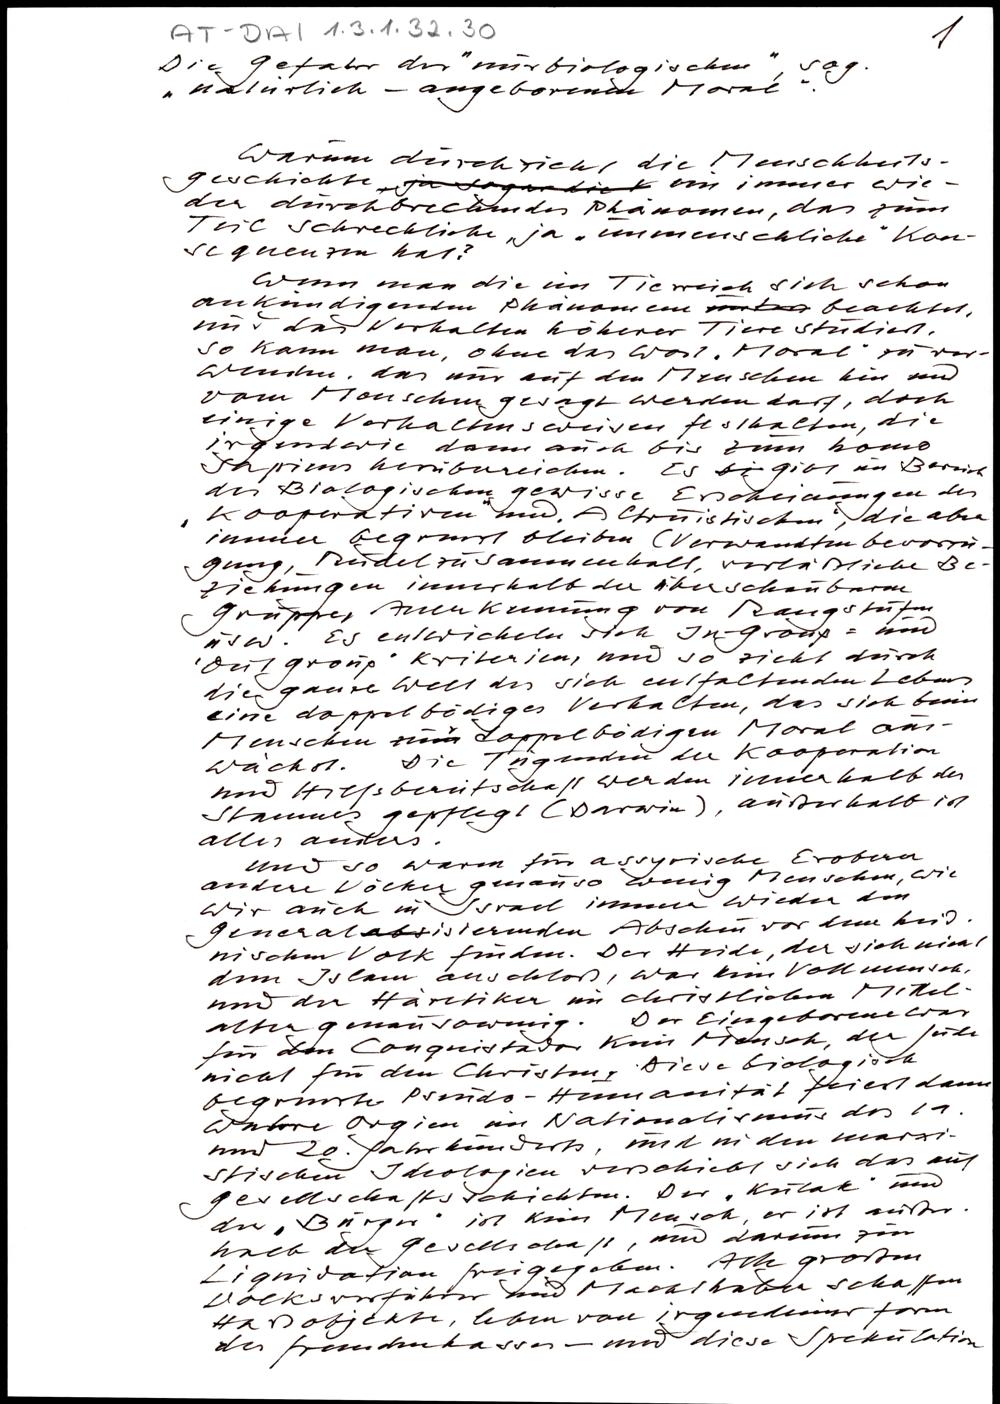 AT-DAI 1.3.1.32.30
1
Die Gefahr der "nurbiologischen", sog.
"natürlich - angeborenen Moral".
Warum durchzieht die Menschheits-
geschichte, ja sogar die ein immer wie-
der durchbrechendes Phänomen, das zum
Teil schreckliche, ja "unmenschliche" Kon-
sequenzen hat?
Wenn man die im Tierreich sich schon
ankündigenden Phänomene beachtet,
und das Verhalten höherer Tiere studiert,
so kann man, ohne das Wort "Moral" zu ver-
wenden, das nur auf den Menschen hin und
vom Menschen gesagt werden darf, doch
einige Verhaltensweisen festhalten, die
irgendwie dann auch bis zum homo
sapiens herüberreichen. Es gibt im Bereich
des Biologischen gewisse Erscheinungen des
"Kooperativen" und "Altruistischen", die aber
immer begrenzt bleiben (Verwandtenbevorzu-
gung, Rudelzusammenhalt, verläßliche Be-
ziehungen innerhalb der überschaubaren
Gruppe, Anerkennung von Rangstufen
usw. Es entwickeln sich In-Group = und
"Outgroup" Kriterien, und so zieht durch
die ganze Welt des sich entfaltenden Lebens
eine doppelbödiges Verhalten, das sich beim
Menschen zur doppelbödigen Moral aus-
wächst. Die Tugenden der Kooperation
und Hilfsbereitschaft werden innerhalb des
Stammes gepflegt (Darwin), außerhalb ist
alles anders.
Und so waren für assyrische Eroberer
andere Völker genauso wenig Menschen, wie
wir auch in Israel immer wieder den
generalisierenden Abscheu vor dem heid-
nischen Volk finden. Der Heide, der sich nicht
dem Islam anschloß, war kein Vollmensch,
und der Häretiker im christlichen Mittel-
alter genausowenig. Der Eingeborene war
für den Conquistador kein Mensch, der Jude
nicht für den Christen. Diese biologisch
begrenzte Pseudo-Humanität feiert dann
wahre Orgien im Nationalismus des 19.
und 20. Jahrhunderts, und in den marxi-
stischen Ideologien verschiebt sich das auf
Gesellschaftsschichten. Der "Kulak" und
der "Bürger" ist kein Mensch, er ist außer-
halb der Gesellschaft, und darum zur
Liquidation freigegeben. Alle großen
Volksverführer und Machthaber schaffen
Haßobjekte, leben von irgendeiner Form
des Fremdenhasses - und diese Spekulation